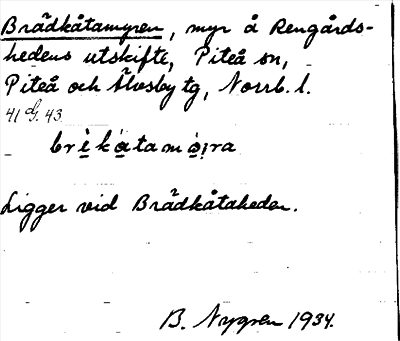 Brädkåtamyren, myr å Rengårds-
hedens utskifte, Piteå sn,
Piteå och Älvsby tg, Norrb. l.
41 43.
Ligger vid Brädkåtaheden.
B. Nygren 1934.